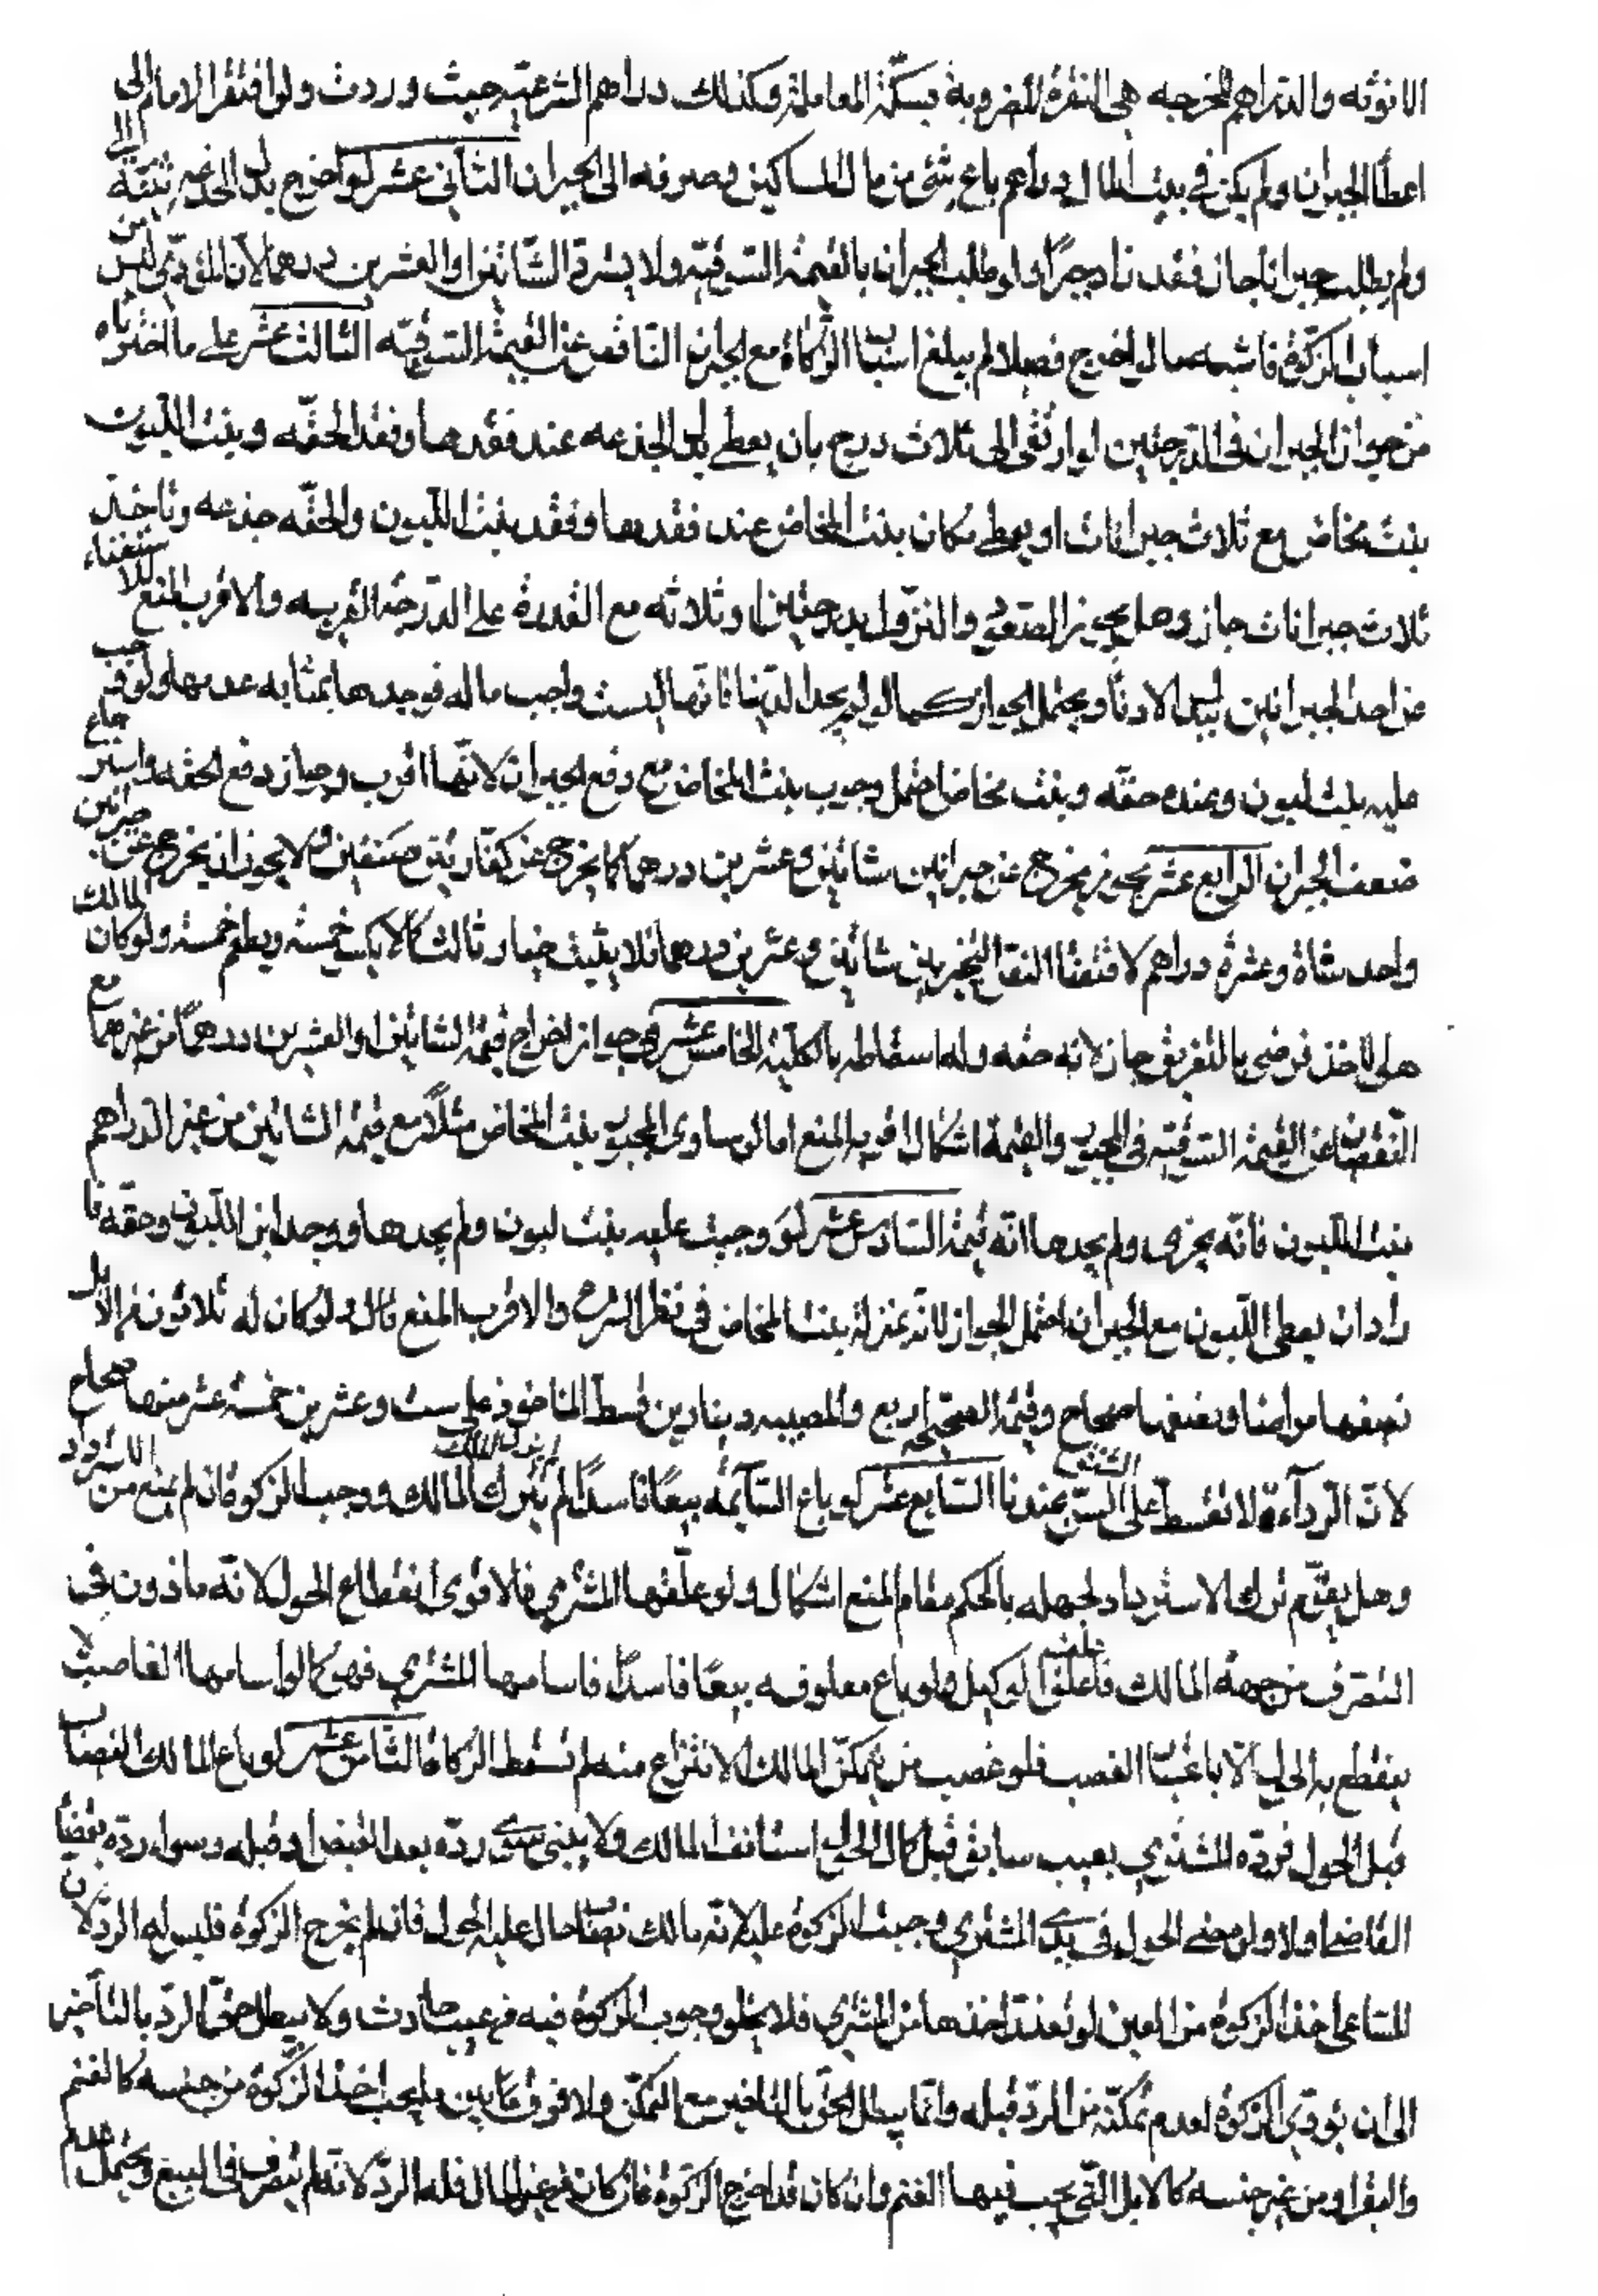 الانوثه والدراهم المخرجه هى النقرة المضروبة بسكّة المعاملة وكذلك دراهم الشرعية حيث وردت ولو افتقر الامام الى
اعطأ الجبران ولم يكن فى بيت المال دراهم باع شئ من مال المساكين وصرفه الى الجبران الثانى عشر لو اخرج بدل الجذعه ثنيّة
ولم يطلب جبرانا جاز فقد زاد خيرًا ولو طلب الجبران بالقيمة السوقيّه ولا يشترط الشاتين او العشرين درهما لان المؤدّى ليس من
اسباب الزكوة فاشبه ما لو اخرج فصيلا لم يبلغ اسنان الزكاة مع الجبران الناقص عن القيمة السوقيّه الثالث عشر على ما اخترناه
من جواز الجبران فى الدرجتين لو ارتقى الى ثلاث درج بان يعطى بدل الجذعه عند فقدها وفقد الحقّه وبنت اللبون
بنت مخاض مع ثلاث جبرانات او يعطى مكان بنت المخاض عند فقدها وفقد بنت اللبون والحقّه جذعه وتاخذ
ثلاث جبرانات جاز وهل يجوز الصعود والنزول بدرجتين او ثلاثه مع القدرة على الدرجة القريبه والاقرب المنع للاستغناء
عن احد الجبرانين ببدل الادنا ويحتمل الجواز كما لو لم يجد لدينا فانها ليست واجب ماله فوجدها بمثابه عدمها ولو وجب
عليه بنت لبون وعنده حقّه وبنت مخاض احتمل وجوب بنت المخاض مع دفع الجبران لانّها اقرب وجاز دفع الحقه واسترجاع
ضعف الجبران الرابع عشر يجوز يخرج عن جبرانين شاتين وعشرين درهما كما يخرج عن كفّارتين صنفين ولا يجوز ان يخرج عن جبران
واحد شاة وعشرة دراهم لاقتضا النص التخيير بين شاتين وعشرين درهما فلا يثبت خيار ثالث كما لا يكسى خمسة ويطعم خمسة ولو كان المالك
هو الاخذ فرضى بالتفريق جاز لانه حقه وله اسقاطه بالكلية الخامس عشر فى جواز اخراج قيمة الشاتين او العشرين درهمًا من غيرهما مع
النقصان عن القيمة السوقيّه فى الجبور والقيمة اشكال اقربه المنع اما لو ساوى المجبور بنت المخاض مثلًا مع قيمة الشاتين من غير الدراهم
بنت اللبون فانّه يجزى ولم يجدها انّه قيمة السادس عشر لو وجبت عليه بنت لبون ولم يجدها ووجد ابن اللبون وحقّه فا
راد ان يعطى اللبون مع الجبران احتمل الجواز لانّه بمنزلة بنت المخاض فى نظر الشرع والاقرب المنع قال ولو كان له ثلاثون من الابل
نصفها مراضا ونصفها صحاح وقيمة الصحيحه اربع والمعيبه دينارين قسط الماخوذ على ست وعشرين خمسة عشر منها صحاح
لانّ الرداءة لا تقسط على السن عندنا السابع عشر لو باع السائمه بيعًا فاسدًا لم يترك المالك ووجب الزكوة فان لم يمنع من الاسترداد
وهل يقوّم ترك الاسترداد لجهله بالحكم مقام المنع اشكال ولو علّفها المشترى فالاقوى انقطاع الحول لانّه ماذون فى
التصرف من جهة المالك فاعلف الوكيل ولو باع معلوفه بيعًا فاسدًا فاسامها المشترى فهو كما لو اسامها الغاصب لا
ينقطع به الحول الّا باعتبار الغصب فلو غصب من يمكن المالك الانتزاع منه لم تسقط الزكاة الثامن عشر لو باع المالك النصاب
قبل الحول فردّه المشترى بعيب سابق قبل كمال الحول استانف المالك ولا يبنى سوى ردّه بعد القبض او قبله وسواء ردّه بقضا
القاضى او لا ولو مضى الحول فى يد المشترى وجبت الزكوة عليه لانّه مالك نصابًا حال عليه الحول فان لم يخرج الزكوة فليس له الرد لان
للساعى اخذ الزكوة من العين لو تعذّر اخذها من المشترى فلا يخلو وجوب الزكوة فيه فهو عيب حادث ولا يبطل حق الرد بالتأخير
الى ان يودّى الزكوة لعدم تمكّنه من الردّ قبله وانّما يبطل الحق بالتاخير مع التمكّن ولا فرق ما بين ما يجب اخذ الزكوة من جنسه كالغنم
والبقر او من غير جنسه كالابل التى يجب فيها الغنم وان كان قد اخرج الزكوة فان كان من غير المال فله الرد لانه لم يتصرف فى المبيع ويحتمل عدم